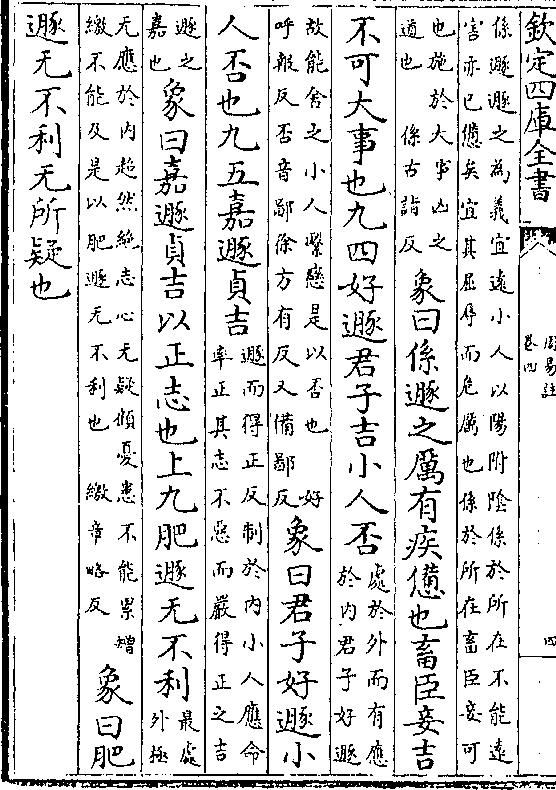 欽定四庫全書
周易註
卷四
四
係遯遯之為義宜遠小人以陽附陰係於所在不能遠
害亦已憊矣宜其屈辱而危厲也係於所在畜臣妾可
也施於大事凶之
道也 係古詣反
象曰係遯之厲有疾憊也畜臣妾吉
不可大事也九四好遯君子吉小人否
處於外而有應
於内君子好遯
故能舍之小人繫戀是以否也 好
呼報反否音鄙徐方有反又備鄙反
象曰君子好遯小
人否也九五嘉遯貞吉
遯而得正反制於内小人應命
率正其志不惡而嚴得正之吉
遯之
嘉也
象曰嘉遯貞吉以正志也上九肥遯无不利
最處
外極
无應於内超然絶志心无疑顧憂患不能累矰
繳不能及是以肥遯无不利也 繳章略反
象曰肥
遯无不利无所疑也